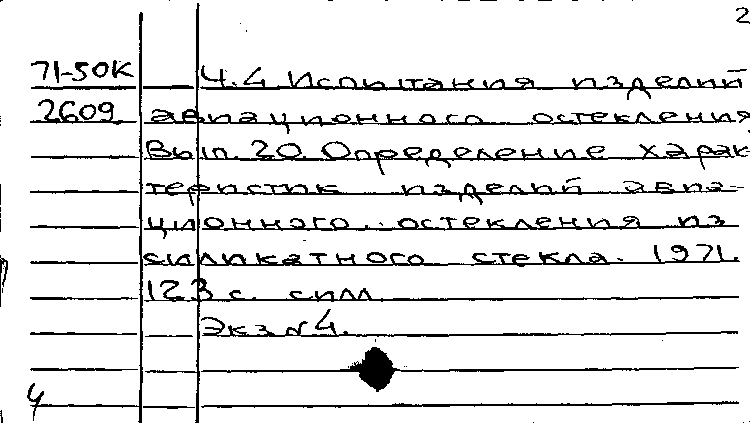 2
71-50К Ч.4 Испытания изделий
2609 авиационного остекления
Вып. 20. Определение харак
теристик изделий авиа-
ционного остекления из
силикатного стекла. 1971.
123 с. с илл.
Экз № 4.
4